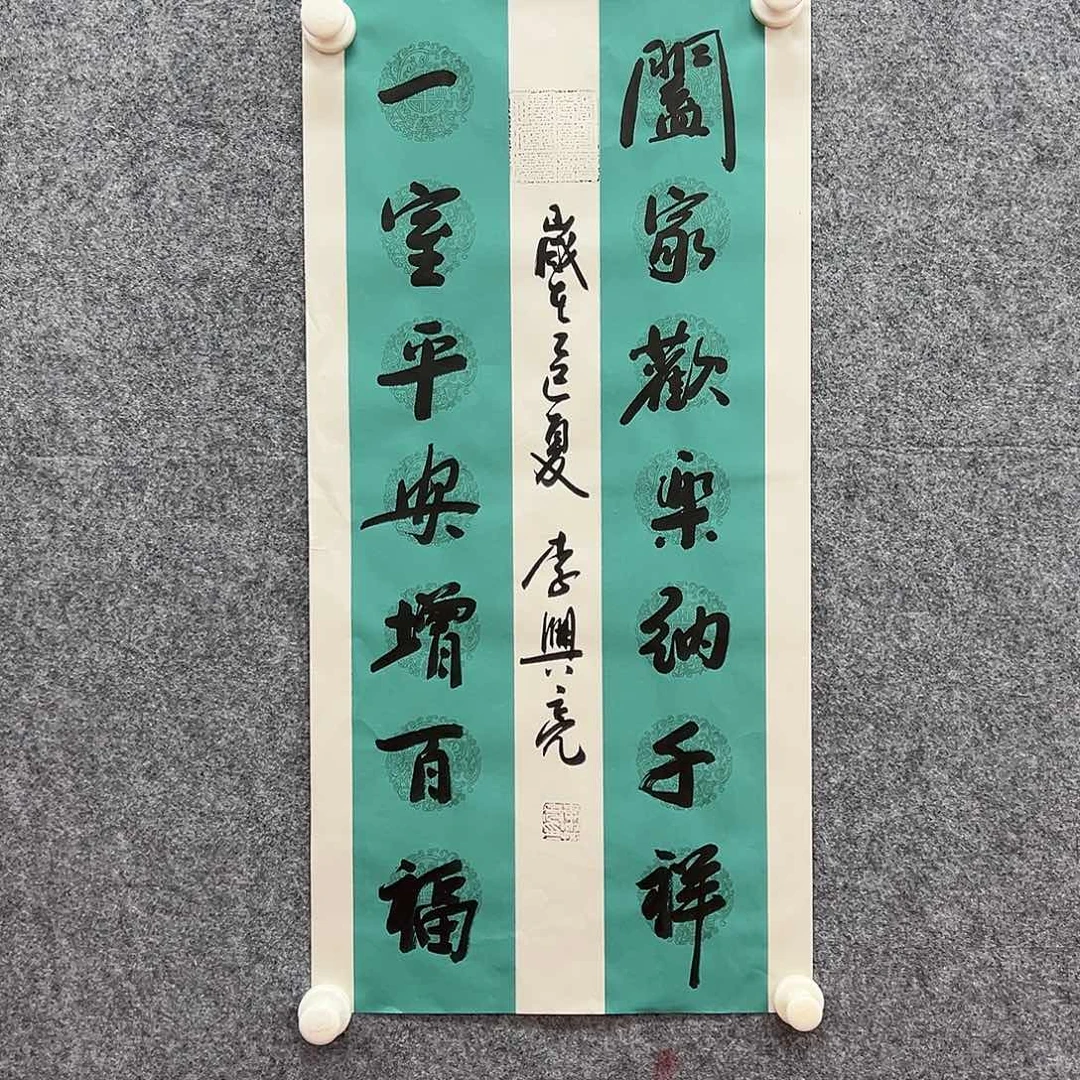 闔家歡樂納千祥
一室平安增百福
歲在乙巳夏 李興亮